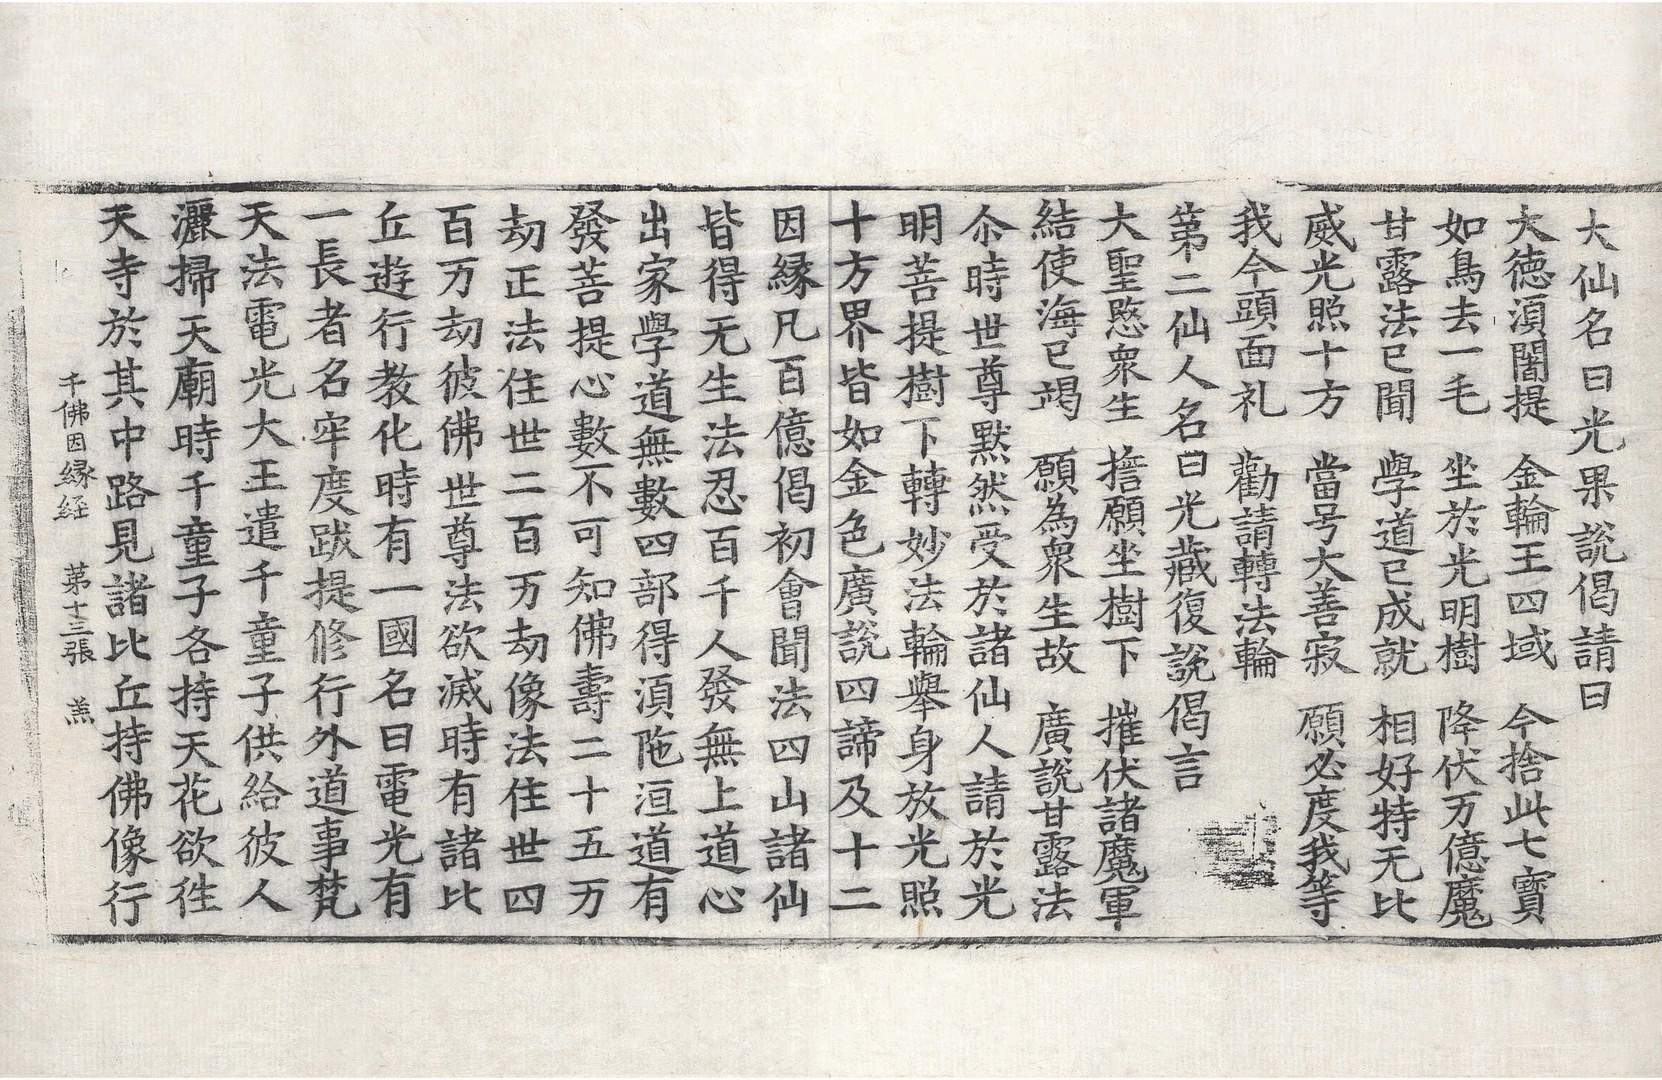 大仙名曰光果說偈請曰
大德湏闍提 金輪王四域 今捨此七寶
如鳥去一毛 坐於光明樹 降伏万億魔
甘露法已聞 學道已成就 相好特无比
威光照十方 當号大善寂 願必度我等
我今頭面礼 勸請轉法輪
第二仙人名曰光藏復說偈言
大聖愍衆生 擔願坐樹下 摧伏諸魔軍
結使海已竭 願為衆生故 廣說甘露法
尒時世尊默然受於諸仙人請於光
明菩提樹下轉妙法輪舉身放光照
十方界皆如金色廣說四諦及十二
因縁凡百億偈初會聞法四山諸仙
皆得无生法忍百千人發無上道心
出家學道無數四部得湏陁洹道有
發菩提心數不可知佛壽二十五万
劫正法住世二百万劫像法住世四
百万劫彼佛世尊法欲滅時有諸比
丘遊行教化時有一國名曰電光有
一長者名牢度跋提修行外道事梵
天法電光大王遣千童子供給彼人
灑掃天廟時千童子各持天花欲徃
天寺於其中路見諸比丘持佛像行
千佛因縁経 第十三張 羔